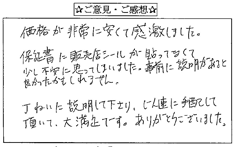 ☆ご意見・ご感想☆
価格が非常に安くて感激しました。
保証書に販売店シールが貼ってなくて
少し不安に思ってしまいました。事前に説明があると
良かったかもしれません。
ていねいに説明して下さり、迅速に手配して
頂いて、大満足です。ありがとうございました。